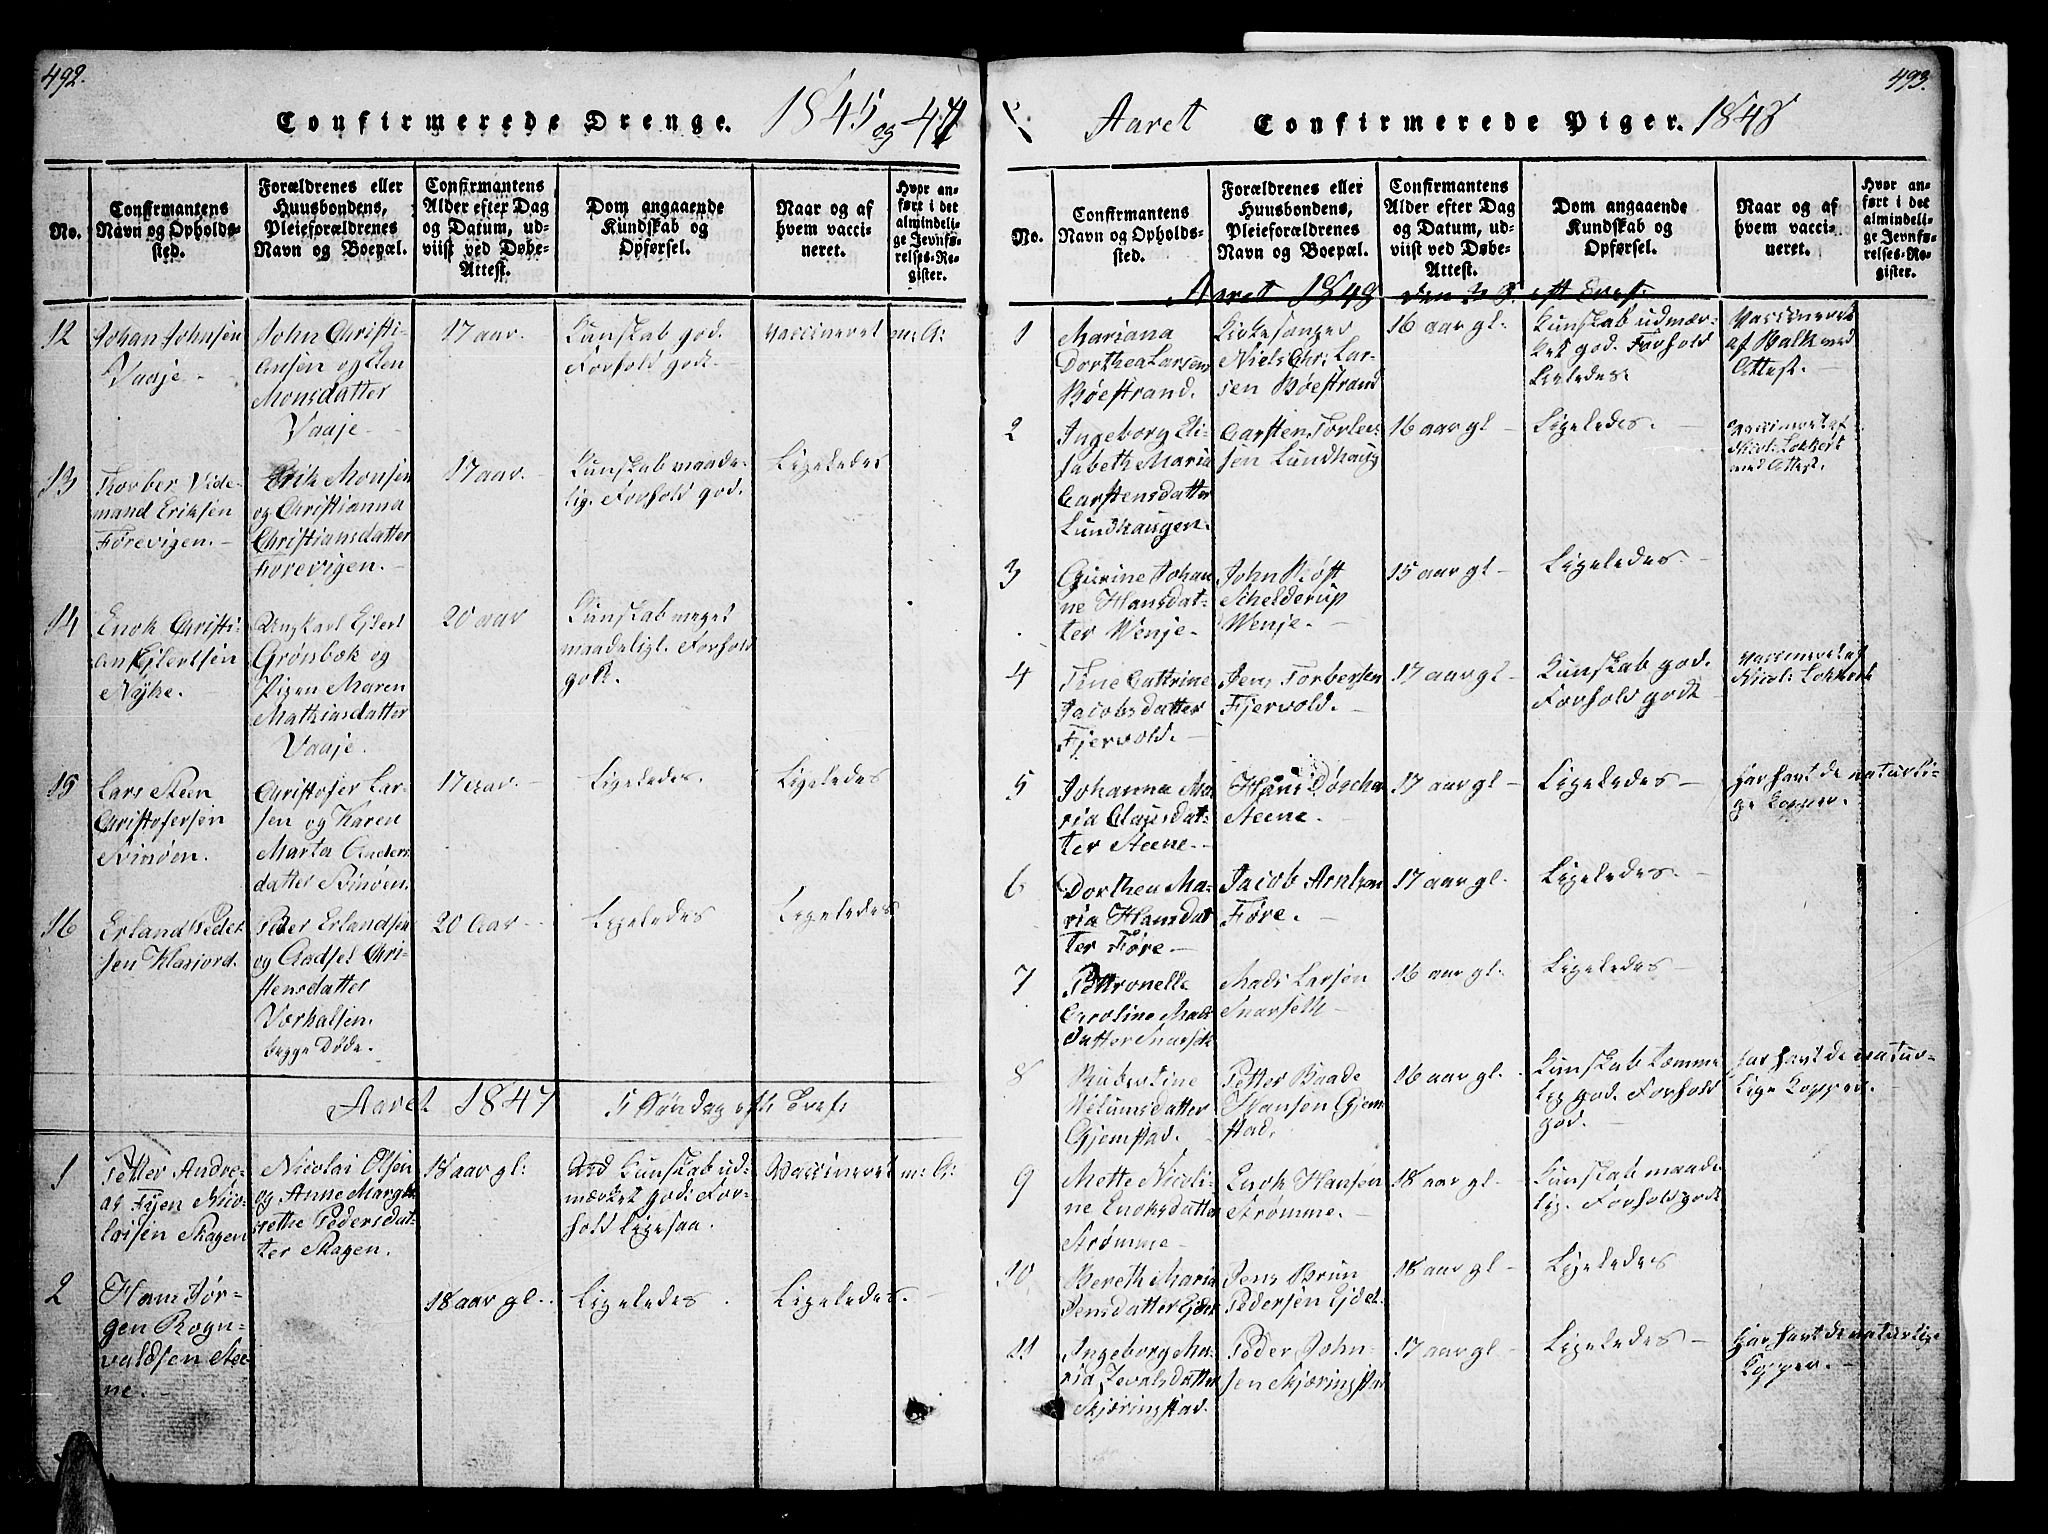 492.
Confirmerede Drenge. 1845 og 47
No.
Confirmantens
Navn og Opholds-
sted.
Forældrenes eller
Huusbondens,
Pleieforældrenes
Navn og Boepæl.
Confirmantens
Alder efter Dag
og Datum, ud-
viist ved Døbe-
Attest.
Dom angaaende
Kundskab og
Opførsel.
Naar og af
hvem vacci-
neret.
Hvor an-
ført i det
almindeli-
ge Jevnfø-
relses-Re-
gister.
12
Johan Johnsen
Vaaje -
John Christi-
ansen og Elen
Monsdatter
Vaaje -
17 aar.
Kunskab god.
Forhold godt -
Vaccineret m: A:
13
Torber Vide-
mand Eriksen
Førevigen. -
Erik Monsen
og Christianna
Christiansdatter
Førevigen. -
17 aar.
Kunskab maade-
lig. Forhold god.
Ligeledes
14
Enok Christi-
an Ejlertsen
Nyke.
Ungkarl Ejlert
Grønbek og
Pigen Maren
Mathiasdatter
Vaaje.
20 aar
Kunskab meget
maadeligt. Forhold
godt.
15
Lars Steen
Christofersen
Svinøen.
Christofer Lar-
sen og Karen
Marta Anders
datter Svinøen.
17 aar. -
Ligeledes.
Ligeledes
16
Erland Peder
sen Klasjord.
Peder Erlandsen
og Chri-
stensdatter
Vorhalsen.
begge Døde.
20 aar. -
Ligeledes
Ligeledes
Aaret 1847 5 Søndag eft:
1
Petter Andre-
as Fyen Nico-
laisen Skagen
Nicolai Olsen
og Anne Marg
rethe Pedersdat-
ter Skagen.
18 aar gl:
Kunskab ud-
mærket god: For-
hold ligesaa.
Vaccineret m: A:
2
Hans Jør-
gen Rogn-
valdsen Stee-
ne. -
18 aar gl. -
Ligeledes.
Ligeledes. -
493.
Aaret Confirmerede Piger. 1848
No.
Confirmantens
Navn og Opholds-
sted.
Forældrenes eller
Huusbondens,
Pleieforældrenes
Navn og Boepæl.
Confirmantens
Alder efter Dag
og Datum, ud-
viist ved Døbe-
Attest.
Dom angaaende
Kundskab og
Opførsel.
Naar og af
hvem vacci-
neret.
Hvor an-
ført i det
almindeli-
ge Jevnfø-
relses-Re-
gister.
Aaret 1848 den
1
Mariana
Dorthea Larsen
Bøestrand.
Kirkesanger
Niels Chr: Lar-
sen Bøestrand
16 aar gl. -
Kunskab udmær-
ket god. Forhold
Ligeledes.
Vaccineret
af Balk med
Attest. -
2
Ingeborg Eli-
sabeth Maria
Carstensdatter
Lundhaugen. -
Carsten Torler-
sen Lundhaug
16 aar gl -
Ligeledes. -
Vaccineret af
Nicol: Lokkert
med Attest.
3
Gurine Johan
ne Hansdat-
ter Wenje -
John Røst
Schelderup
Wenje. -
15 aar gl -
Ligeledes. -
4
Tine Cattrine
Jacobsdatter
Fjervold. -
Jens Torbersen
Fjervold. -
17 aar gl -
Kunskab god.
Forhold godt -
Vaccineret af
Nicol: Lokkert
5
Johanna Ma-
ria Clausdat-
ter Steene. -
Hans
Steene. -
17 aar gl -
Ligeledes -
har havt de naturli-
ge Kopper. -
6
Dorthea Ma-
ria Hansdat
ter Føre -
Jacob Arntzen
Føre. -
17 aar gl. -
Ligeledes. -
7
Petronelle
Caroline Mads
datter Snarset
Mads Larsen
Snarseth
16 aar gl. -
Ligeledes -
8
Rubertine
Velumsdatter
Gjemstad.
Petter Baade
Hansen Gjem
stad.
16 aar gl. -
Kunskab temme
lig god. Forhold
god.
har havt de natur-
lige Kopper. -
9
Mette Nicoli-
ne Enoksdatter
Strømme -
Enok Hansen
Strømme. -
18 aar gl. -
Kunskab maade
lig. Forhold godt
10
Bereth Maria
Jensdatter
Jens Brun
Pedersen
18 aar gl -
Ligeledes
11
Ingeborg Ma-
ria Zevalsdatter
Skjæringstad.
Peder John-
sen Skjæringstad
17 aar gl -
Ligeledes -
har havt de naturlige
Kopper. -